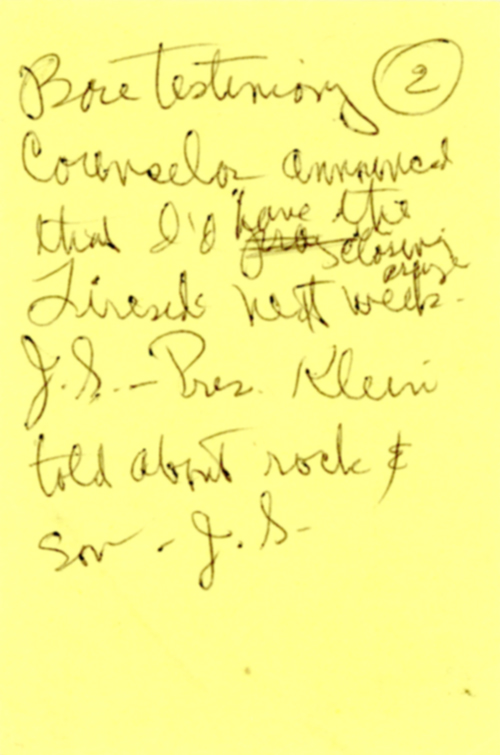 Bore testimony 2
Counselor announced
that I'd have the
closing
next week.
J.S. - Pres. Klein
told about rock &
son - J.S.